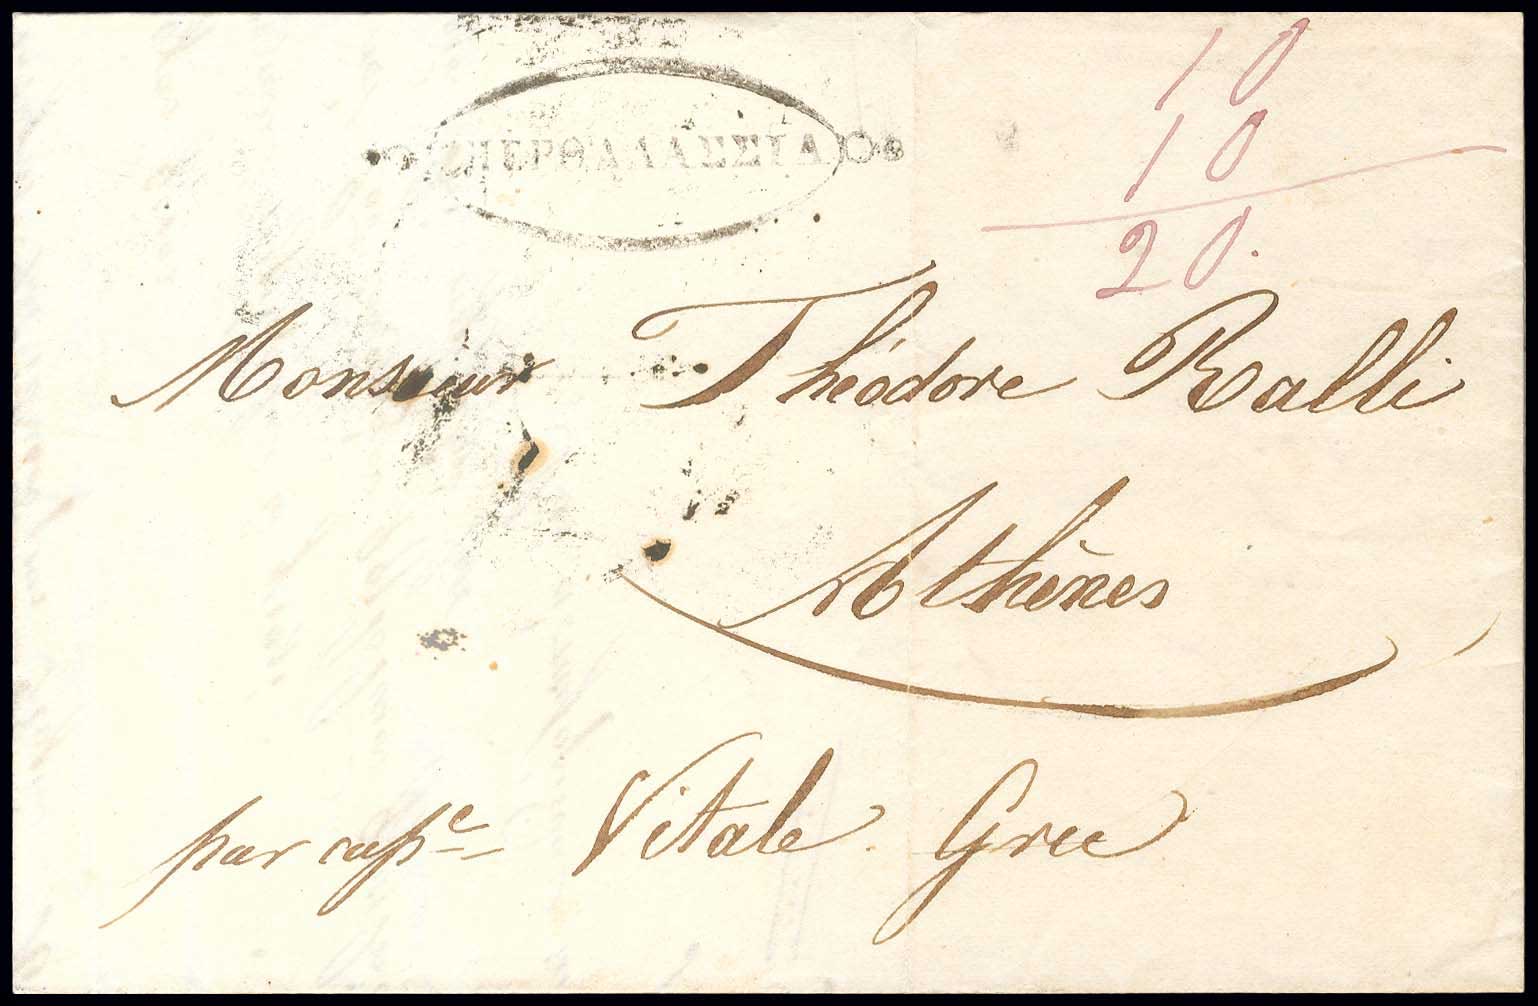 ΥΠΕΡΘΑΛΑΣΣΙΑ
10
10
20.
Monsieur Théodore Ralli
Athènes
par cap.e Vitale Grec